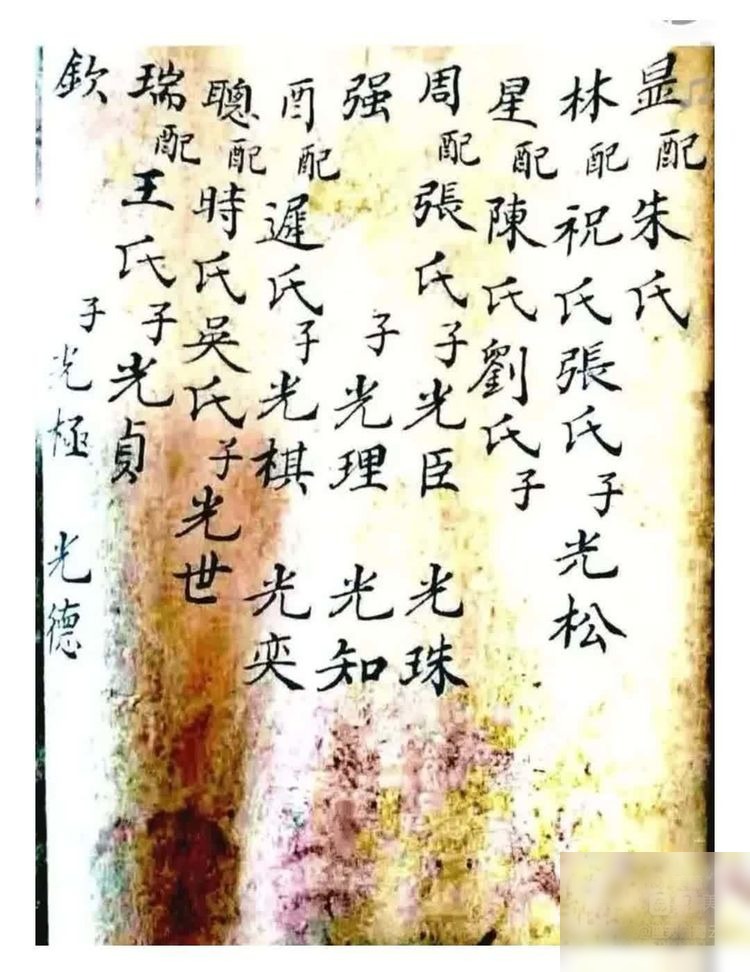 昱配朱氏
林配祝氏張氏子光松
星配陳氏劉氏子
周配張氏子光臣 光珠
强 子光理 光知
酉配遲氏子光棋 光奕
聰配時氏吳氏子光世
瑞配王氏子光貞
欽 子光極 光德